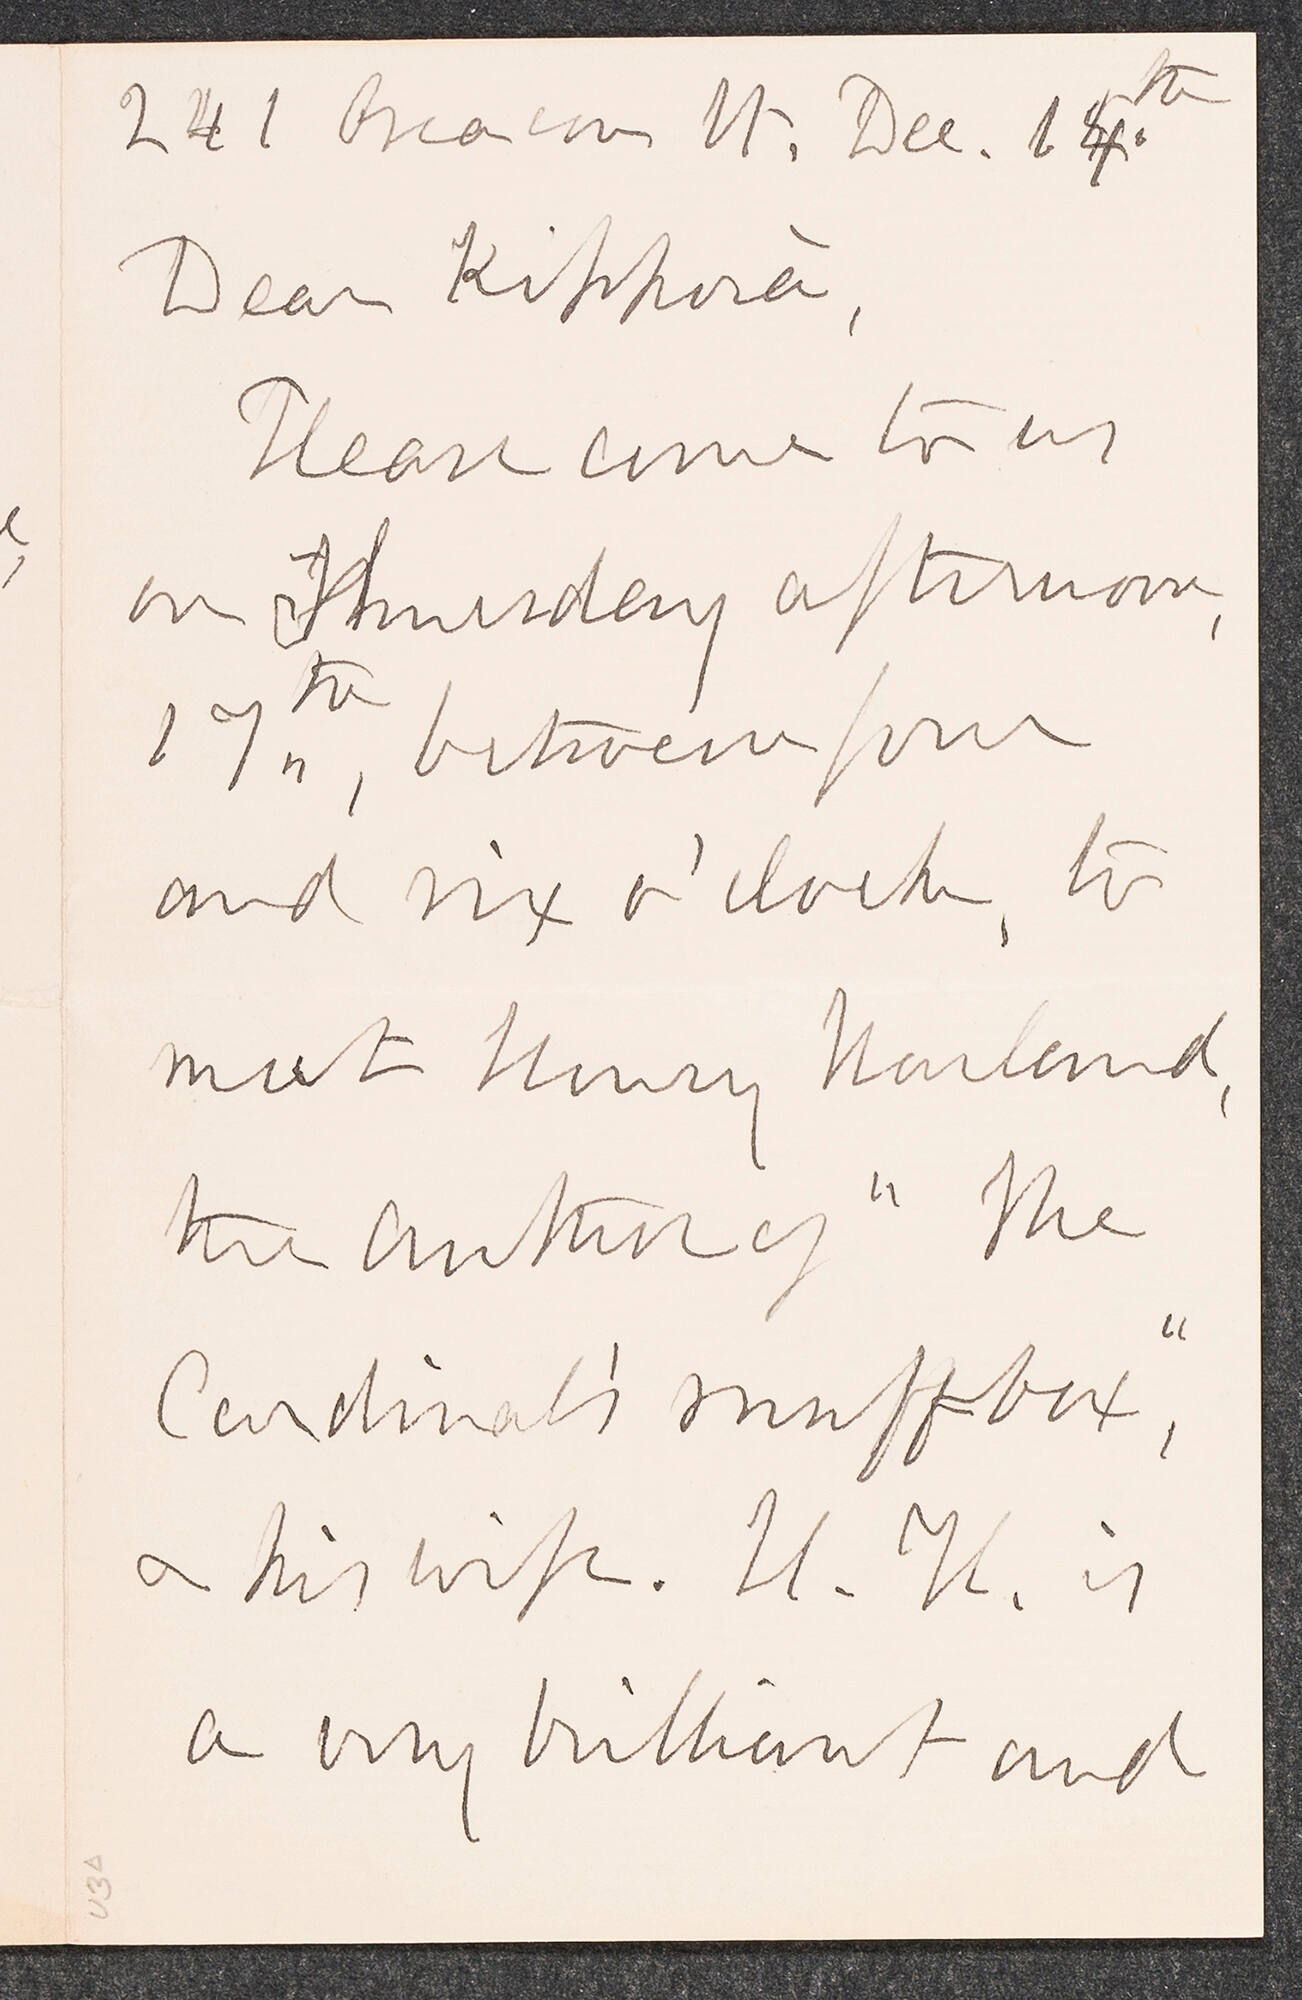 241 Beacon St. Dec. 14th.
Dear Kipporà,
Please come to us
on Thursday afternoon,
17th, between four
and six o'clock, to
meet Henry Harland,
the author of "The
Cardinal's snuff box",
& his wife. H. H. is
a very brilliant and